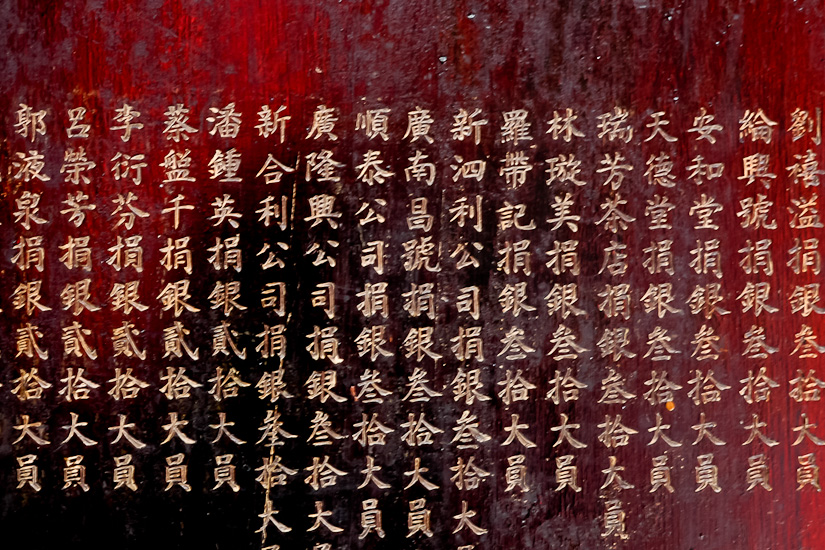 劉禧溢捐銀叁拾大員
綸興號捐銀叁拾大員
安和堂捐銀叁拾大員
天德堂捐銀叁拾大員
瑞芳茶店捐銀叁拾大員
林璇美捐銀叁拾大員
羅帶記捐銀叁拾大員
新泗利公司捐銀叁拾大
廣南昌號捐銀叁拾大員
順泰公司捐銀叁拾大員
廣隆興公司捐銀叁拾大
新合利公司捐銀叁拾大
潘鍾英捐銀貳拾大員
蔡盤千捐銀貳拾大員
李衍芬捐銀貳拾大員
呂榮芳捐銀貳拾大員
郭液泉捐銀貳拾大員